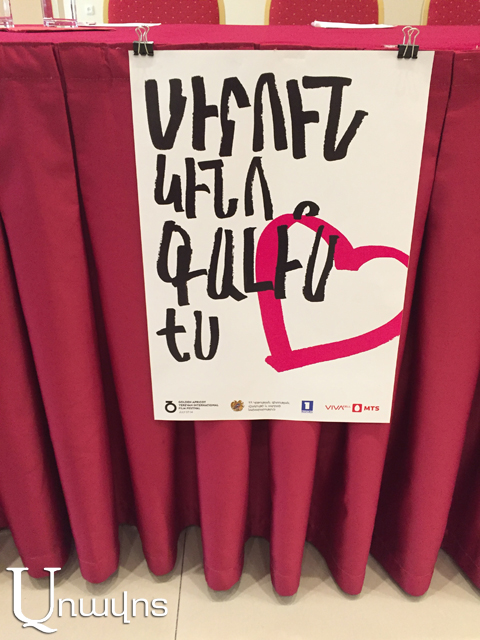 ՍԻՐՈՒՆ
ԿԻՆՈ
ԳԱԼԻ՞Ս
ԵՍ
GOLDEN APRICOT
YEREVAN INTERNATIONAL
FILM FESTIVAL
1
VIVA MTS
Առավոտ